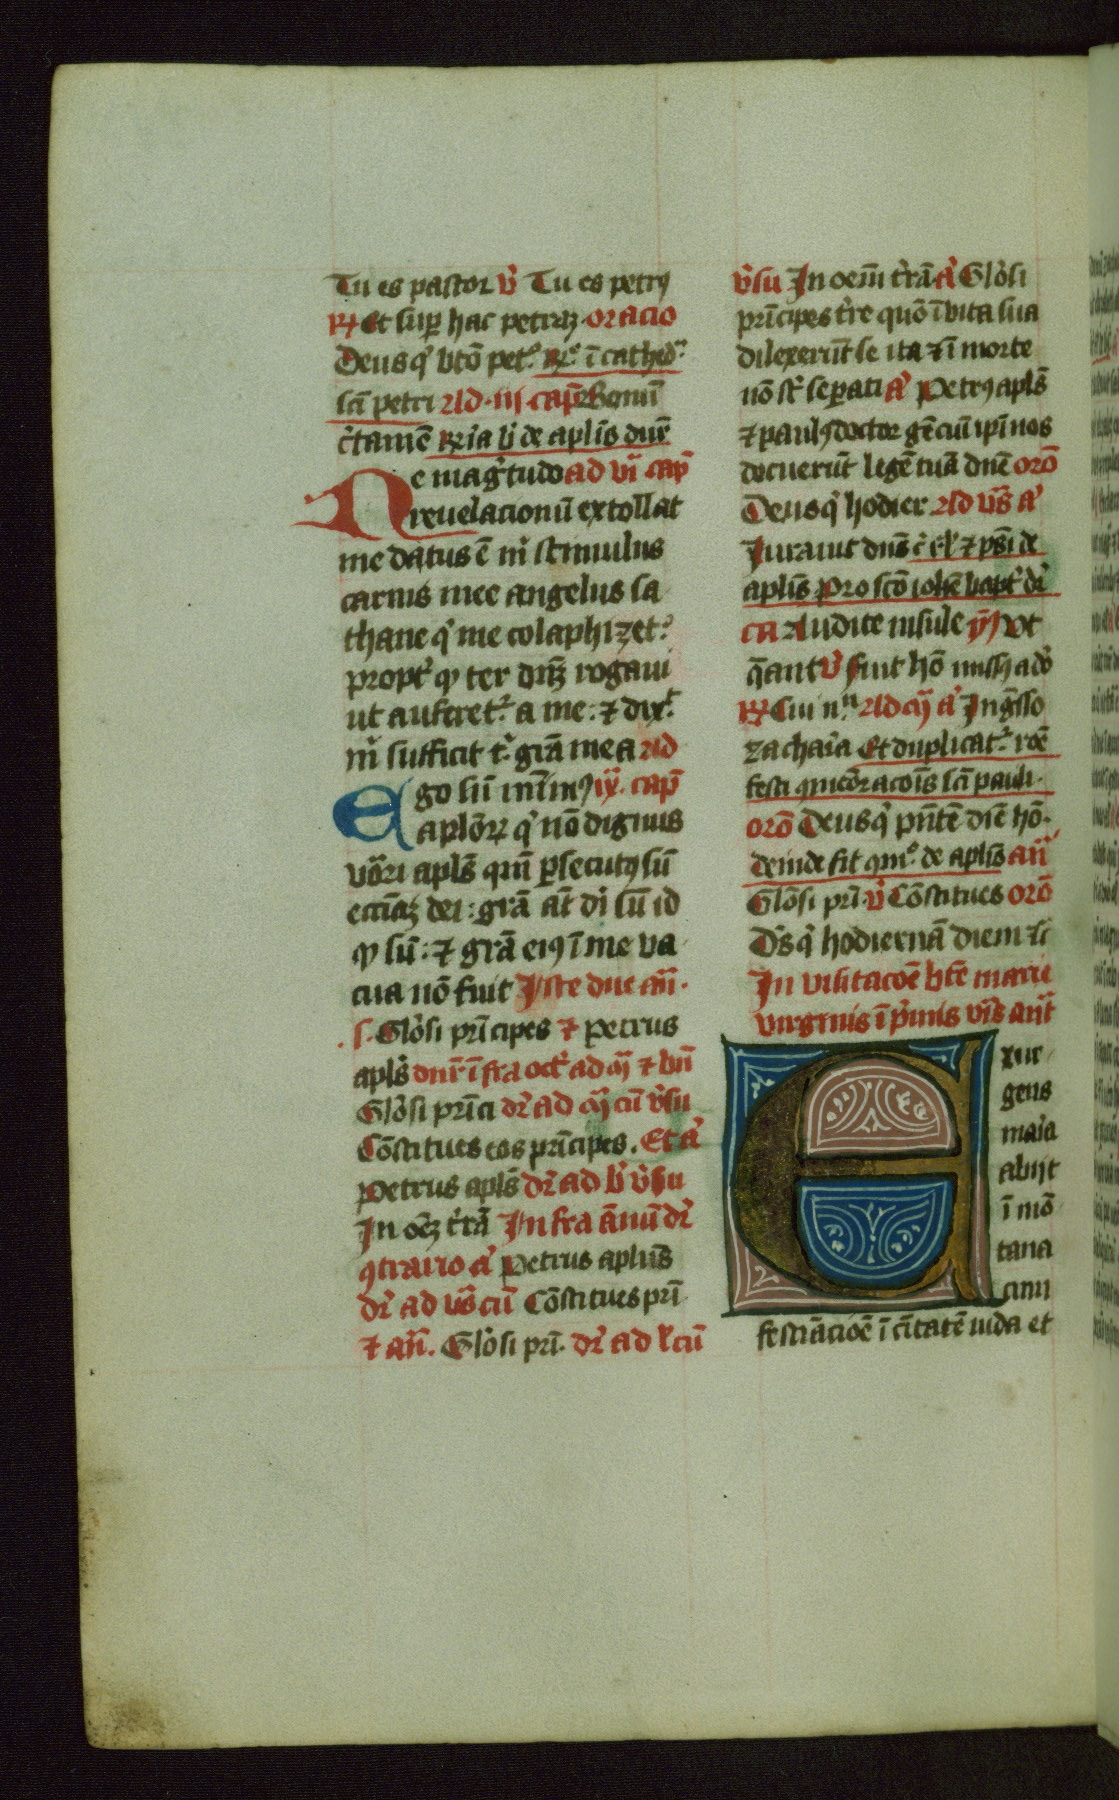 Tu es pastor v̉ Tu es petrꝰ
Et suꝑ hac petraꝫ oracio
Deus qͥ btō pet͛ i cathed͛
scī petri ad iij cap̄ Bonū
c̓tamē ꝶria b̓ de aplis dnr̄
Ne magͥtudo ad vi cap̄
reuelacionū extollat
me datus ē m̓ stimulus
carnis mee angelus sa
thane qͥ me colaphizet͛
propt̓ qͦ ter dn̄ꝫ rogaui
ut auferet͛ a me : ⁊ dix̓
m̓ sufficit t̓ grā mea ad
Ego sū mīmꝰ ix cap̄
aplōꝝ qͥ nō dignus
vōri apls̄ qm̄ ꝑsecutꝰ sū
eccīaꝫ dei : grā at̄ di sū id
qͦ sū : ⁊ grā eiꝰ ī me va
cua nō fuit Iste due an̄
.s. Glōsi prīcipes ⁊ petrus
apls̄ dnr̄ īfra oct̓ ad ⁊ bn̄
Glōsi prīci dr̓ ad cū v̓su
Cōstitues eos prīcipes . Et a̓
Petrus apls̄ dr̓ ad b̓ v̓su
In oēꝫ t̓rā Infra ānū dr̓
ꝯtrario a̓ Petrus aplus̄
dr̓ ad vs̄ cū Cōstitues prī
⁊ an̄. Glōsi prī. dr̓ ad cū
v̓su In oēm t̓rā a̓ Glōsi
prīcipes t̓re quō ī vita sua
dilexerūt se ita ⁊ ī morte
nō st̓ seꝑati a̓ Petrꝰ apls̄
⁊ paulꝰ doctor gēciū ip̄i nos
docuerūt legē tuā dn̄e orō
Deus qͥ hodier ad vs̄ a̓
Iurauit dns̄ c̓ ⁊ ps̄i de
aplis̄ Pro scō iohē bapt̓ dr̓
ca Audite insule Vt
q̄ant v̓ fuit hō missꝰ adō
Sui n̄ ad a̓ Ingr̄sso
zacharia Et duplicat͛ roē
festi ꝓpt̓ cōmemoracōis scī pauli
orō Deus qͥ pn̄tē diē hō.
deinde fit de aplis̄ an̄
Glōsi prī v̓ Cōstitues orō
D̓s qͥ hodiernā diem
In visitacōe bt̄e marie
virginis ī pͥmis vs̄ ant̄
Exur
gens
maria
abijt
ī mō
tana
cum
festiācioē ī cītatē iuda et